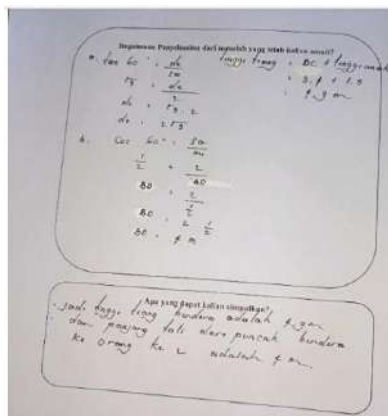 Bagaimana Penyelesaian dari masalah yang telah kalian amati?
a. tan 60° = de / sa
√3 = de / 2
de = √3 . 2
de = 2√3
tinggi tiang = DC + tinggi anak
= 3,4 + 1,5
= 4,9 m
b. Cos 60° = sa / mi
1/2 = 2 / BD
BD = 2 / 1/2
BD = 2
BD = 4 m
Apa yang dapat kalian simpulkan?
Jadi tinggi tiang bendera adalah 4,9m
dan panjang tali dari puncak bendera
ke orang ke 2 adalah 4 m.